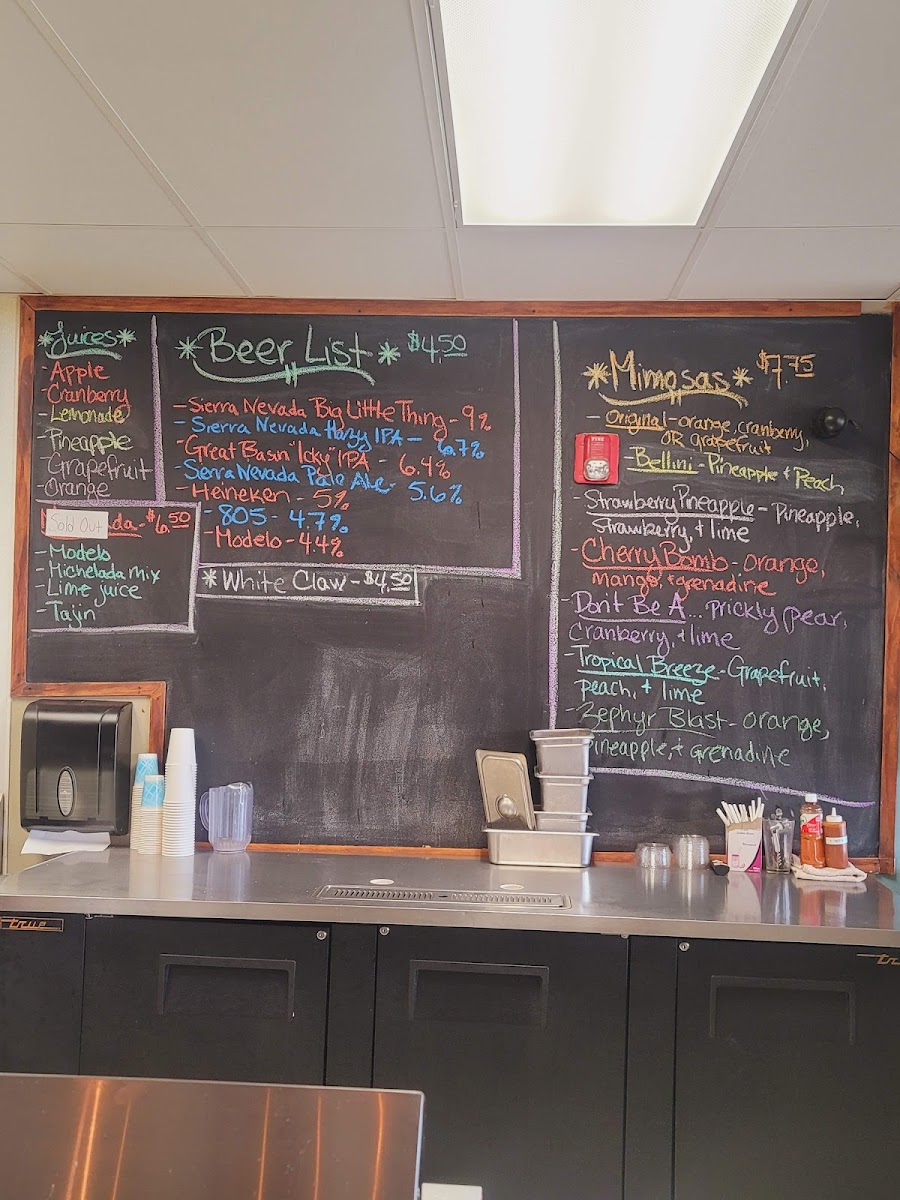 *Juices*
- Apple
- Cranberry
- Lemonade
- Pineapple
- Grapefruit
- Orange
Sold Out
$6.50
- Modelo
- Michelada mix
- Lime juice
- Tajin
*Beer List* $4.50
- Sierra Nevada Big Little Thing - 9%
- Sierra Nevada Hazy IPA - 6.7%
- Great Basin "Icky" IPA - 6.4%
- Sierra Nevada Pale Ale - 5.6%
- Heineken - 5%
- 805 - 4.7%
- Modelo - 4.4%
*White Claw - $4.50
*Mimosas* $7.75
- Original - orange, cranberry,
OR grapefruit
FIRE
- Bellini - Pineapple + Peach
- Strawberry Pineapple - Pineapple,
Strawberry, + lime
- Cherry Bomb - orange,
mango, + grenadine
- Don't Be A... prickly pear,
Cranberry, + lime
- Tropical Breeze - Grapefruit,
peach, + lime
- Zephyr Blast - orange,
pineapple, + grenadine
True